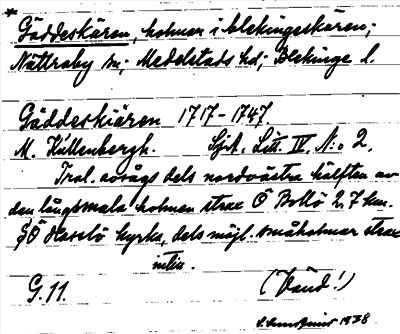 * Gäddeskären, holmar i blekingeskären;
Nättraby sn; Medelstads hd; Blekinge l.
Gäddeskiären 1717-1747.
M. Källenbergh. Sjök. Litt. IV, N:o 2.
Trol. avsågs dels nordvästra hälften av
den långsmala holmen strax Ö Bollö 2,7 km.
SÖ Hasslö kyrka, dels möjl. småholmar strax
intill.
G. 11. (Vänd!)
1938